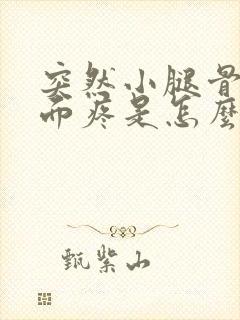 突然小腿骨
而疼是怎麼
甄紫山